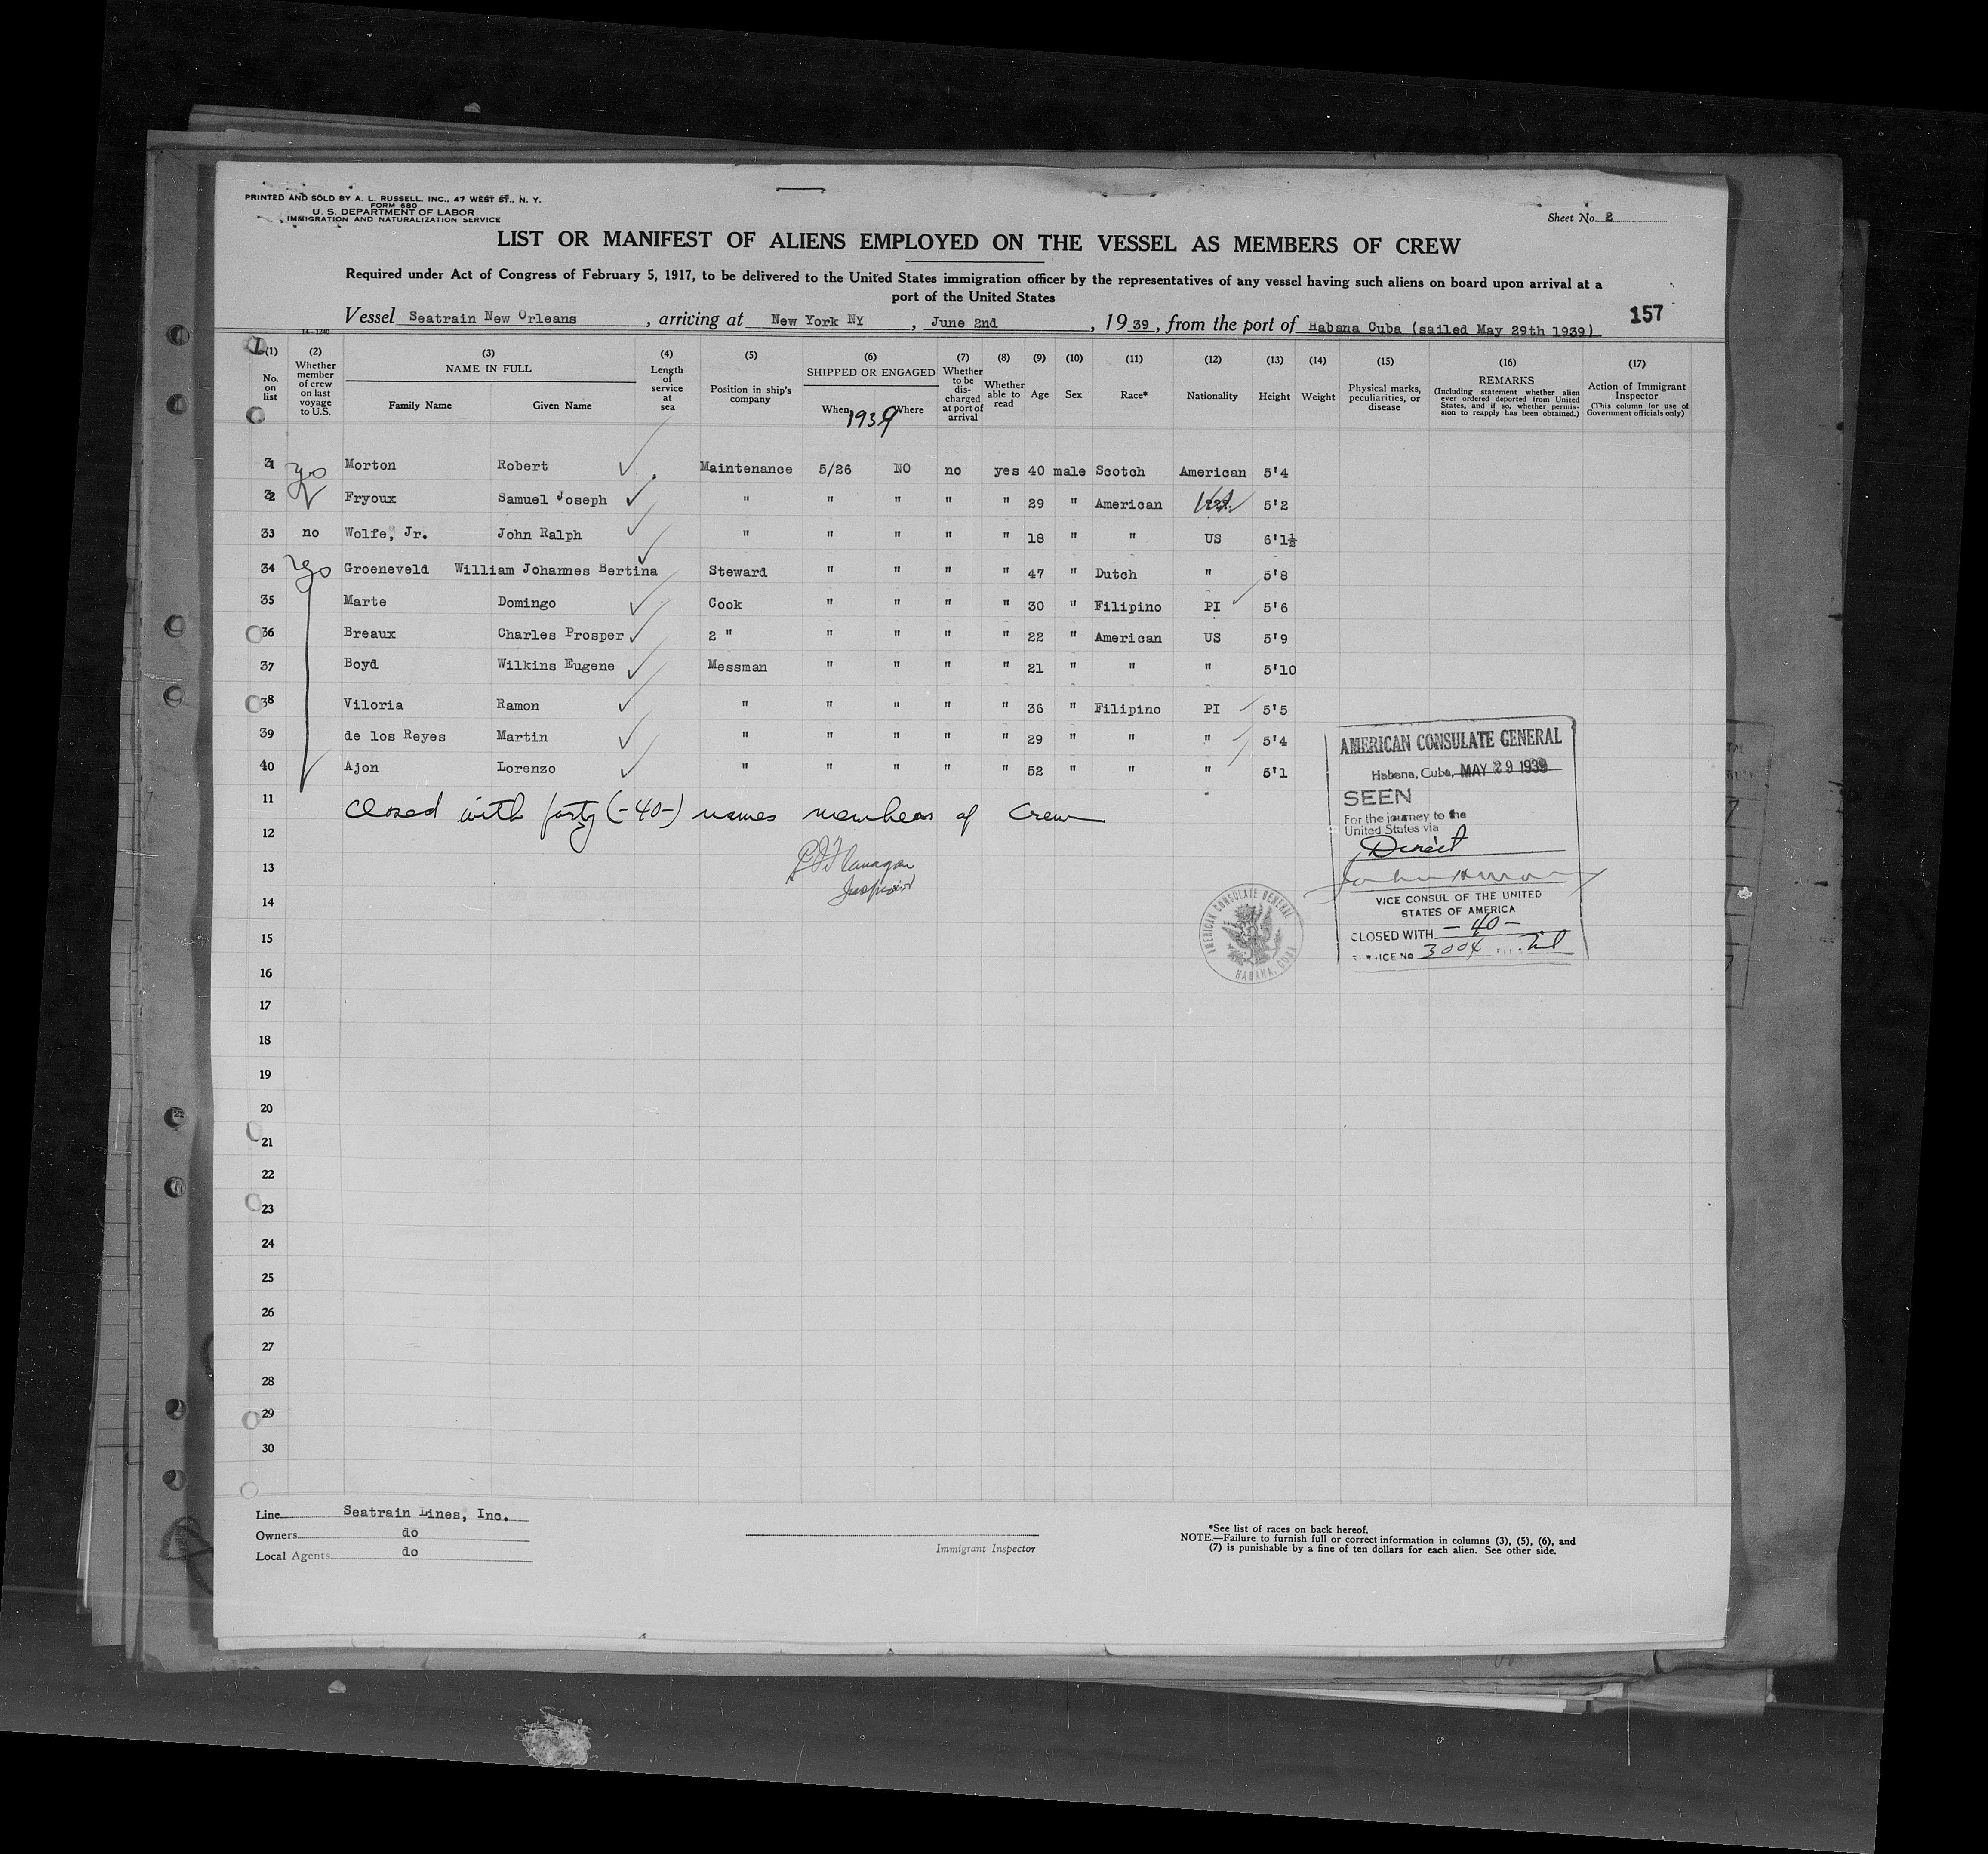 PRINTED AND SOLD BY A. L. RUSSELL, INC., 47 WEST ST., N. Y.
FORM 680
U. S. DEPARTMENT OF LABOR
IMMIGRATION AND NATURALIZATION SERVICE
Sheet No. 2
LIST OR MANIFEST OF ALIENS EMPLOYED ON THE VESSEL AS MEMBERS OF CREW
Required under Act of Congress of February 5, 1917, to be delivered to the United States immigration officer by the representatives of any vessel having such aliens on board upon arrival at a
port of the United States
157
Vessel Seatrain New Orleans, arriving at New York NY, June 2nd, 1939, from the port of Habana Cuba (sailed May 29th 1939)
14-1240
(1) No. on list
(2) Whether member of crew on last voyage to U.S.
(3) NAME IN FULL Family Name Given Name
(4) Length of service at sea
(5) Position in ship's company
(6) SHIPPED OR ENGAGED When Where
1939
(7) Whether to be discharged at port of arrival
(8) Whether able to read
(9) Age
(10) Sex
(11) Race*
(12) Nationality
(13) Height
(14) Weight
(15) Physical marks, peculiarities, or disease
(16) REMARKS (Including statement whether alien ever ordered deported from United States, and if so, whether permission to reapply has been obtained.)
(17) Action of Immigrant Inspector (This column for use of Government officials only)
31 yes Morton Robert Maintenance 5/26 NO no yes 40 male Scotch American 5'4
32 Fryoux Samuel Joseph " " " " " 29 " American 5'2
33 no Wolfe, Jr. John Ralph " " " " " 18 " " US 6'1½
34 yes Groeneveld William Johannes Bertina Steward " " " " 47 " Dutch " 5'8
35 Marte Domingo Cook " " " " 30 " Filipino PI 5'6
36 Breaux Charles Prosper 2 " " " " " 22 " American US 5'9
37 Boyd Wilkins Eugene Messman " " " " 21 " " " 5'10
38 Viloria Ramon " " " " " 36 " Filipino PI 5'5
39 de los Reyes Martin " " " " " 29 " " " 5'4
40 Ajon Lorenzo " " " " " 52 " " " 5'1
11 Closed with forty (-40-) names members of Crew
12
13
Inspector
14
15
16
17
18
19
20
21
22
23
24
25
26
27
28
29
30
AMERICAN CONSULATE GENERAL
Habana, Cuba, MAY 29 1939
SEEN
For the journey to the
United States via
Direct
VICE CONSUL OF THE UNITED
STATES OF AMERICA
CLOSED WITH -40-
SERVICE No 3004
AMERICAN CONSULATE GENERAL
HABANA, CUBA
Line Seatrain Lines, Inc.
Owners do
Local Agents do
Immigrant Inspector
*See list of races on back hereof.
NOTE.—Failure to furnish full or correct information in columns (3), (5), (6), and
(7) is punishable by a fine of ten dollars for each alien. See other side.